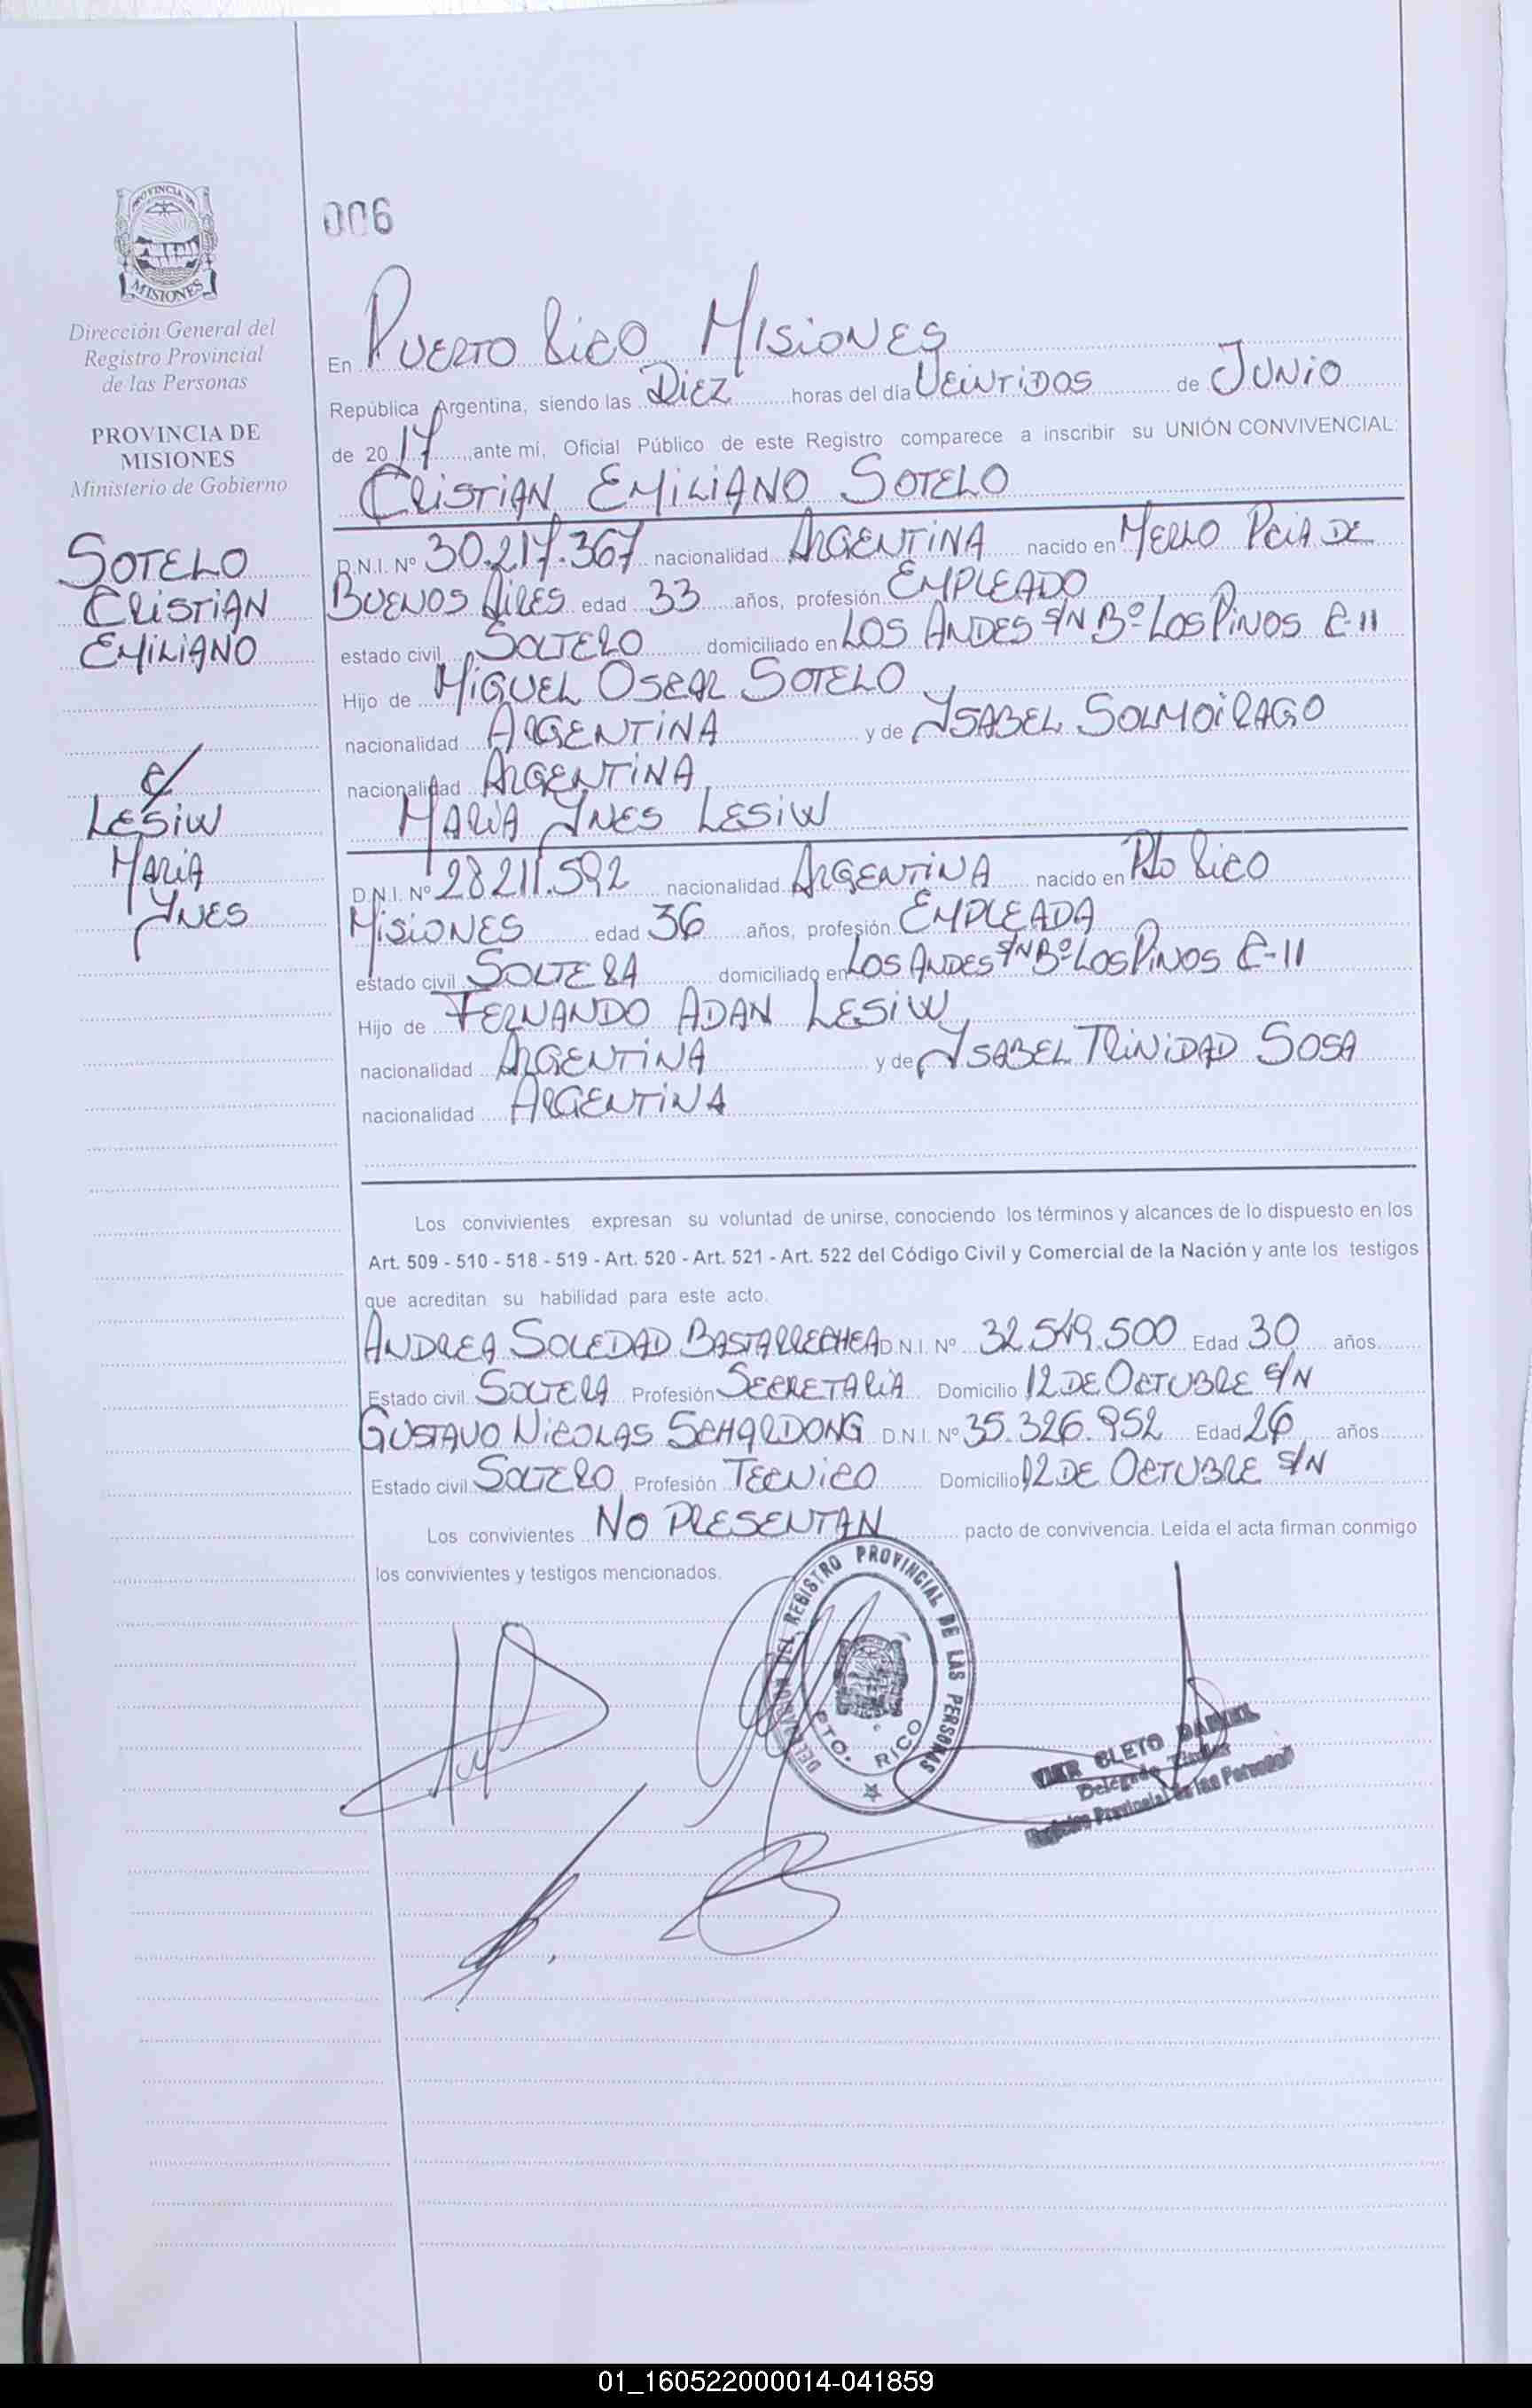 PROVINCIA DE
MISIONES
Dirección General del
Registro Provincial
de las Personas
PROVINCIA DE
MISIONES
Ministerio de Gobierno
SOTELO
CRISTIAN
EMILIANO
C/
LESIW
MARIA
YNES
006
En PUERTO RICO MISIONES
República Argentina, siendo las DIEZ horas del día VEINTIDOS de JUNIO
de 2017, ante mí, Oficial Público de este Registro comparece a inscribir su UNIÓN CONVIVENCIAL:
CRISTIAN EMILIANO SOTELO
D.N.I. Nº 30.217.367 nacionalidad ARGENTINA nacido en MERLO PCIA DE
BUENOS AIRES edad 33 años, profesión EMPLEADO
estado civil SOLTERO domiciliado en LOS ANDES S/N Bº LOS PINOS C-11
Hijo de MIGUEL OSCAR SOTELO
nacionalidad ARGENTINA y de YSABEL SOLMOIRAGO
nacionalidad ARGENTINA
MARIA YNES LESIW
D.N.I. Nº 28.211.592 nacionalidad ARGENTINA nacido en PTO RICO
MISIONES edad 36 años, profesión EMPLEADA
estado civil SOLTERA domiciliado en LOS ANDES S/N Bº LOS PINOS C-11
Hijo de FERNANDO ADAN LESIW
nacionalidad ARGENTINA y de YSABEL TRINIDAD SOSA
nacionalidad ARGENTINA
Los convivientes expresan su voluntad de unirse, conociendo los términos y alcances de lo dispuesto en los
Art. 509 - 510 - 518 - 519 - Art. 520 - Art. 521 - Art. 522 del Código Civil y Comercial de la Nación y ante los testigos
que acreditan su habilidad para este acto.
ANDREA SOLEDAD BASTARRECHEA D.N.I. Nº 32.549.500 Edad 30 años
Estado civil SOLTERA Profesión SECRETARIA Domicilio 12 DE OCTUBRE S/N
GUSTAVO NICOLAS SCHARDONG D.N.I. Nº 35.326.952 Edad 26 años
Estado civil SOLTERO Profesión TECNICO Domicilio 12 DE OCTUBRE S/N
Los convivientes NO PRESENTAN pacto de convivencia. Leída el acta firman conmigo
los convivientes y testigos mencionados.
DEL REGISTRO PROVINCIAL DE LAS PERSONAS
PTO. RICO
CLETO DANIEL
Delegado Titular
Registro Provincial de las Personas
01_160522000014-041859